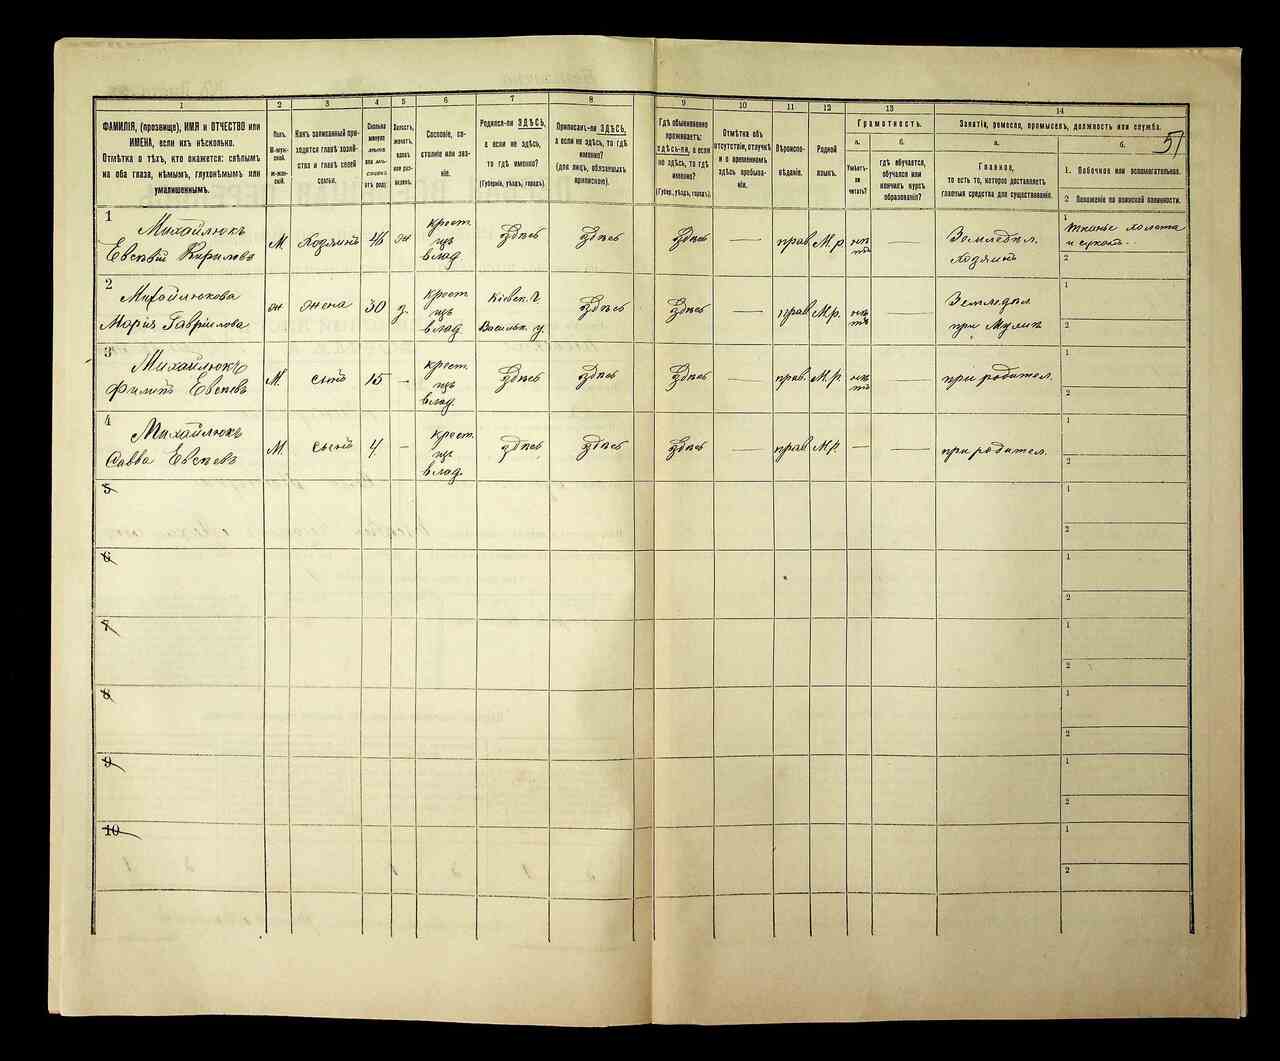 1
2
3
4
5
6
7
8
9
10
11
12
13
14
ФАМИЛІЯ, (прозвище), ИМЯ и ОТЧЕСТВО или
ИМЕНА, если ихъ нѣсколько.
Отмѣтка о тѣхъ, кто окажется: слѣпымъ
на оба глаза, нѣмымъ, глухонѣмымъ или
умалишеннымъ.
Полъ.
М-муж-
ской.
Ж-жен-
скій.
Какъ записанный при-
ходится главѣ хозяй-
ства и главѣ своей
семьи.
Сколько
минуло
лѣтъ
Холостъ,
женатъ,
вдовъ
или раз-
веденъ.
Сословіе, со-
стояніе или зва-
ніе.
Родился-ли ЗДѢСЬ,
а если не здѣсь,
то гдѣ именно?
(Губернія, уѣздъ, городъ).
Приписанъ-ли ЗДѢСЬ,
а если не здѣсь, то гдѣ
именно?
(для лицъ, обязанныхъ
припиской).
Гдѣ обыкновенно
проживаетъ:
здѣсь-ли, а если
не здѣсь, то гдѣ
именно?
(Губер., уѣздъ, городъ).
Отмѣтка объ
отсутствіи, отлучкѣ
и о временномъ
здѣсь пребыва-
ніи.
Вѣроиспо-
вѣданіе.
Родной
языкъ.
Грамотность.
а.
Умѣетъ-
ли
читать?
б.
гдѣ обучается,
обучался или
кончилъ курсъ
образованія?
Занятіе, ремесло, промыселъ, должность или служба.
а.
Главное,
то есть то, которое доставляетъ
главныя средства для существованія.
б.
51
1. Побочное или вспомогательное.
2 Положеніе по воинской повинности.
1
Михайлюкъ
Евсѣвій Кирилова
М.
Хозяинъ
46
ж
крест.
изъ
влад.
здѣсь
здѣсь
здѣсь
—
прав.
М.р.
нѣ
тъ
—
Земледѣл.
Хозяинъ
1
тканье холста
и суконъ.
2
2
Михайлюкова
Марія Гавріилова
ж
жена
30
з.
крест
изъ
влад.
Кіевск. г.
Васильк. у.
здѣсь
здѣсь
—
прав
М.р.
нѣ
тъ
—
Земледѣл
при Мужѣ
1
2
3
Михайлюкъ
Филипъ Евсѣевъ
М.
сынъ
15
-
крест.
изъ
влад.
здѣсь
здѣсь
здѣсь
—
прав.
М.р.
нѣ
тъ
—
при родител.
1
2
4
Михайлюкъ
Савва Евсѣевъ
М.
сынъ
4
—
крест.
изъ
влад.
здѣсь
здѣсь
здѣсь
—
прав
М.р.
—
—
при родител.
1
2
5
1
2
6
1
2
7
1
2
8
1
2
9
1
2
10
1
2